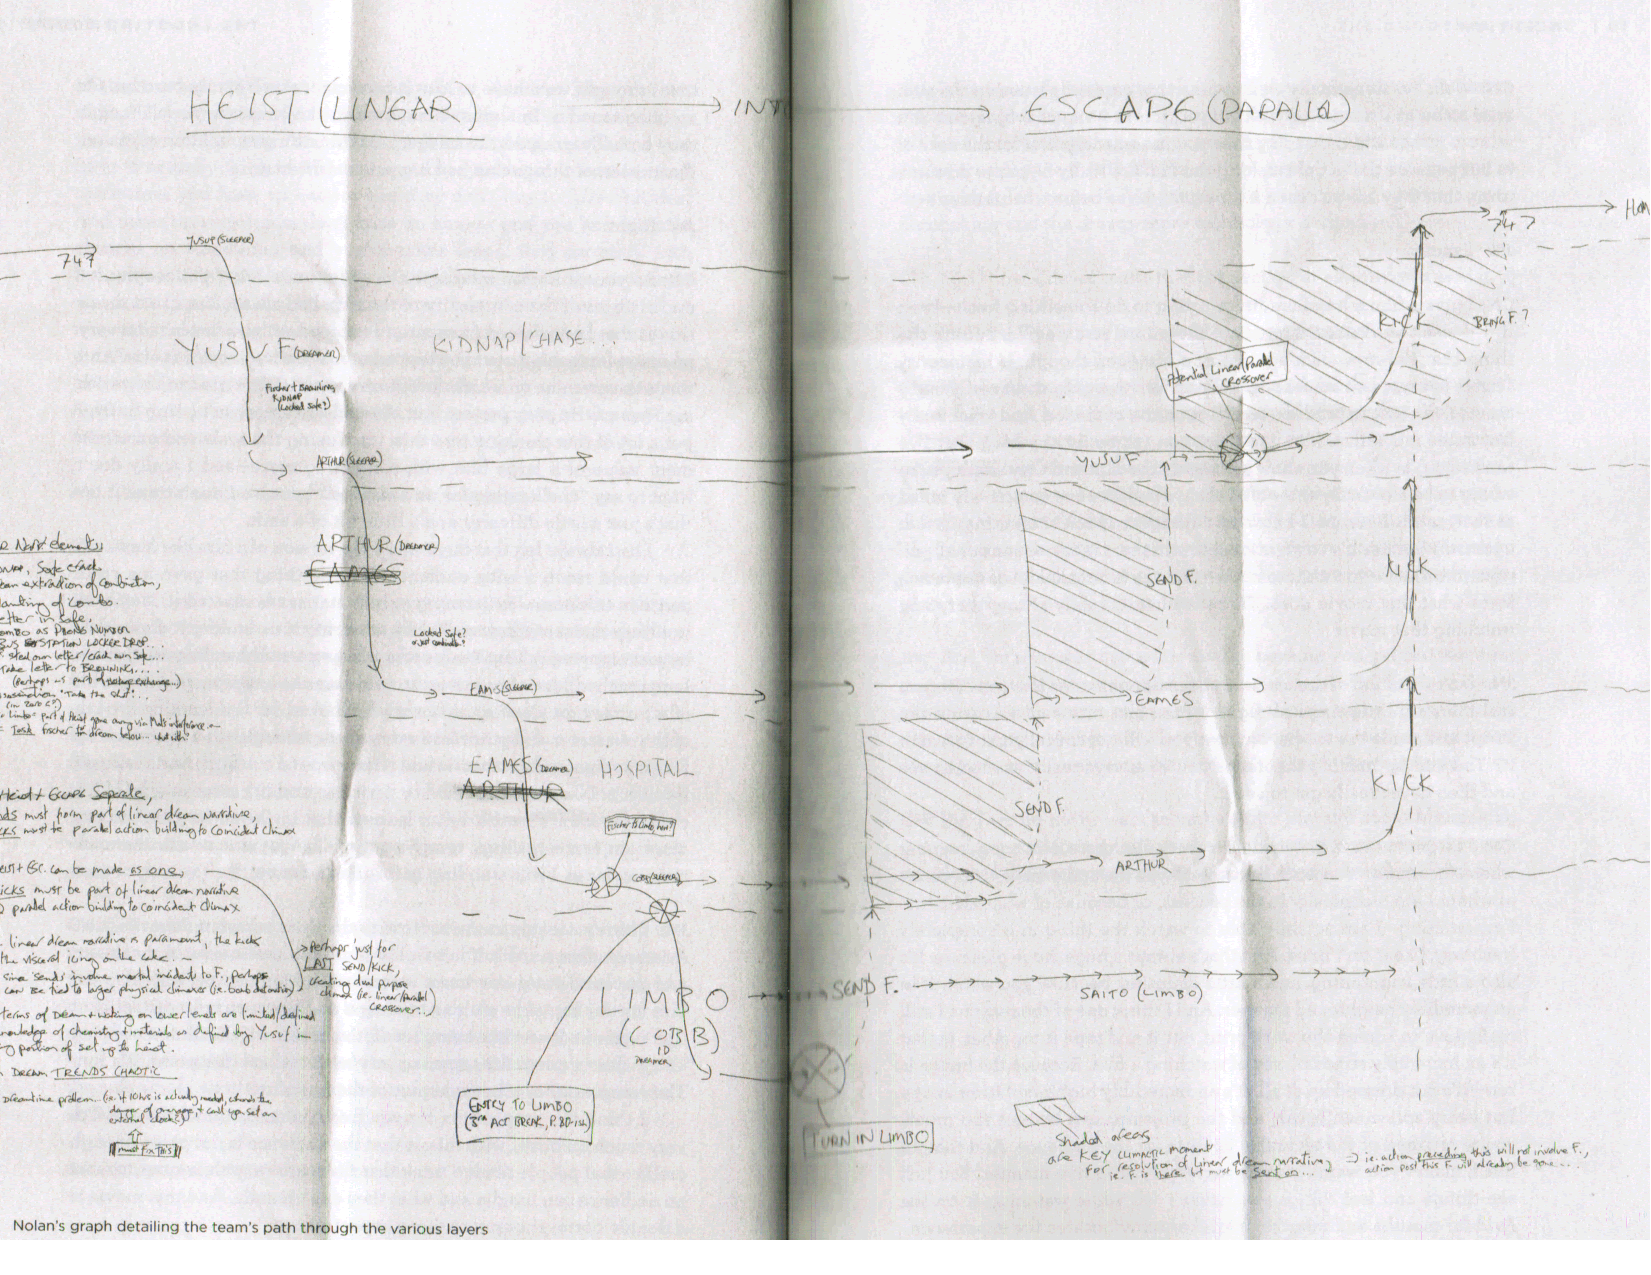 HEIST (LINEAR) → INT → ESCAPE (PARALLEL)
747
YUSUF (SLEEPER)
747 → HOM
YUSUF (DREAMER)
KIDNAP/CHASE...
Fischer + Browning
KIDNAP
(Locked Safe?)
KICK
BRING F.?
Potential Linear/Parallel
CROSSOVER
ARTHUR (SLEEPER)
YUSUF
ARTHUR (DREAMER)
EAMES
Locked Safe?
SEND F.
KICK
EAMS (SLEEPER)
EAMES
EAMES (DREAMER) HOSPITAL
ARTHUR
SEND F.
KICK
Fischer to Limbo, here?
COBB (SLEEPER)
ARTHUR
LIMBO
(COBB)
DREAMER
SEND F.
SAITO (LIMBO)
ENTRY TO LIMBO
(3RD ACT BREAK, P. 80-ish)
TURN IN LIMBO
Shaded areas
are KEY climactic moment
for resolution of Linear dream narrative,
ie. F. is there but must be sent on...
→ ie. action preceding this will not involve F.,
action post this F. will already be gone...
R Narr elements
Safe crack
extraction of Combination,
planting of Combo
etter in Safe,
ombo as PHONE NUMBER
BUS STATION LOCKER DROP...
steal own letter/crack own Safe...
Take letter to BROWNING....
(Perhaps as part of exchange...)
"Take the Shot"...
Limbo = part of Heist gone awry via Mal's interference
= Task fischer to dream below...
Heist + Escape Separate,
must form part of linear dream Narrative,
cks must be parallel action building to Coincident Climax
+ Esc. can be made as one,
icks must be part of linear dream narrative
parallel action building to coincident climax
linear dream narrative is paramount, the kicks
the visceral icing on the cake. —
since 'sends' involve mortal incidents to F., perhaps
can be tied to larger physical climaxes (ie. bomb detonation)
→ Perhaps 'just for
LAST SEND/KICK,
creating dual purpose
climax (ie. linear/parallel
CROSSOVER...)
terms of Dream + waking on lower levels are limited/defined
knowledge of chemistry + materials as defined by Yusuf —
portion of set up to heist.
DREAM TRENDS CHAOTIC
Dreamtime problem...
external clock?)
must Fix This
Nolan's graph detailing the team's path through the various layers